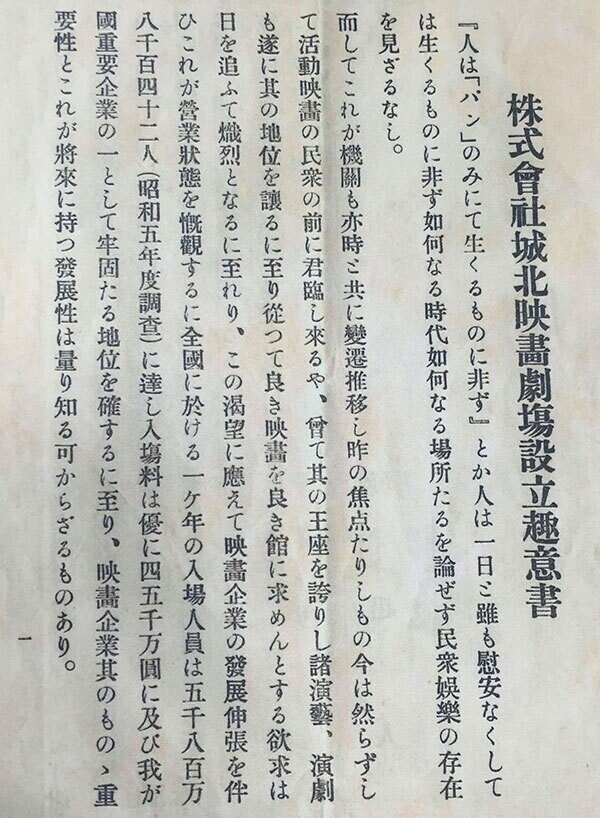 株式會社城北映畫劇場設立趣意書
『人は「パン」のみにて生くるものに非ず』とか人は一日と雖も慰安なくして
は生くるものに非ず如何なる時代如何なる場所たるを論ぜず民衆娯樂の存在
を見ざるなし。
而してこれが機關も亦時と共に變遷推移し昨の焦点たりしもの今は然らずし
て活動映畫の民衆の前に君臨し來るや、曾て其の王座を誇りし諸演藝、演劇
も遂に其の地位を讓るに至り從つて良き映畫を良き館に求めんとする欲求は
日を追ふて熾烈となるに至れり、この渴望に應えて映畫企業の發展伸張を伴
ひこれが營業狀態を慨觀するに全國に於ける一ケ年の入場人員は五千八百万
八千百四十二人(昭和五年度調査)に達し入塲料は優に四五千万圓に及び我が
國重要企業の一として牢固たる地位を確するに至り、映畫企業其のものゝ重
要性とこれが將來に持つ發展性は量り知る可からざるものあり。
一